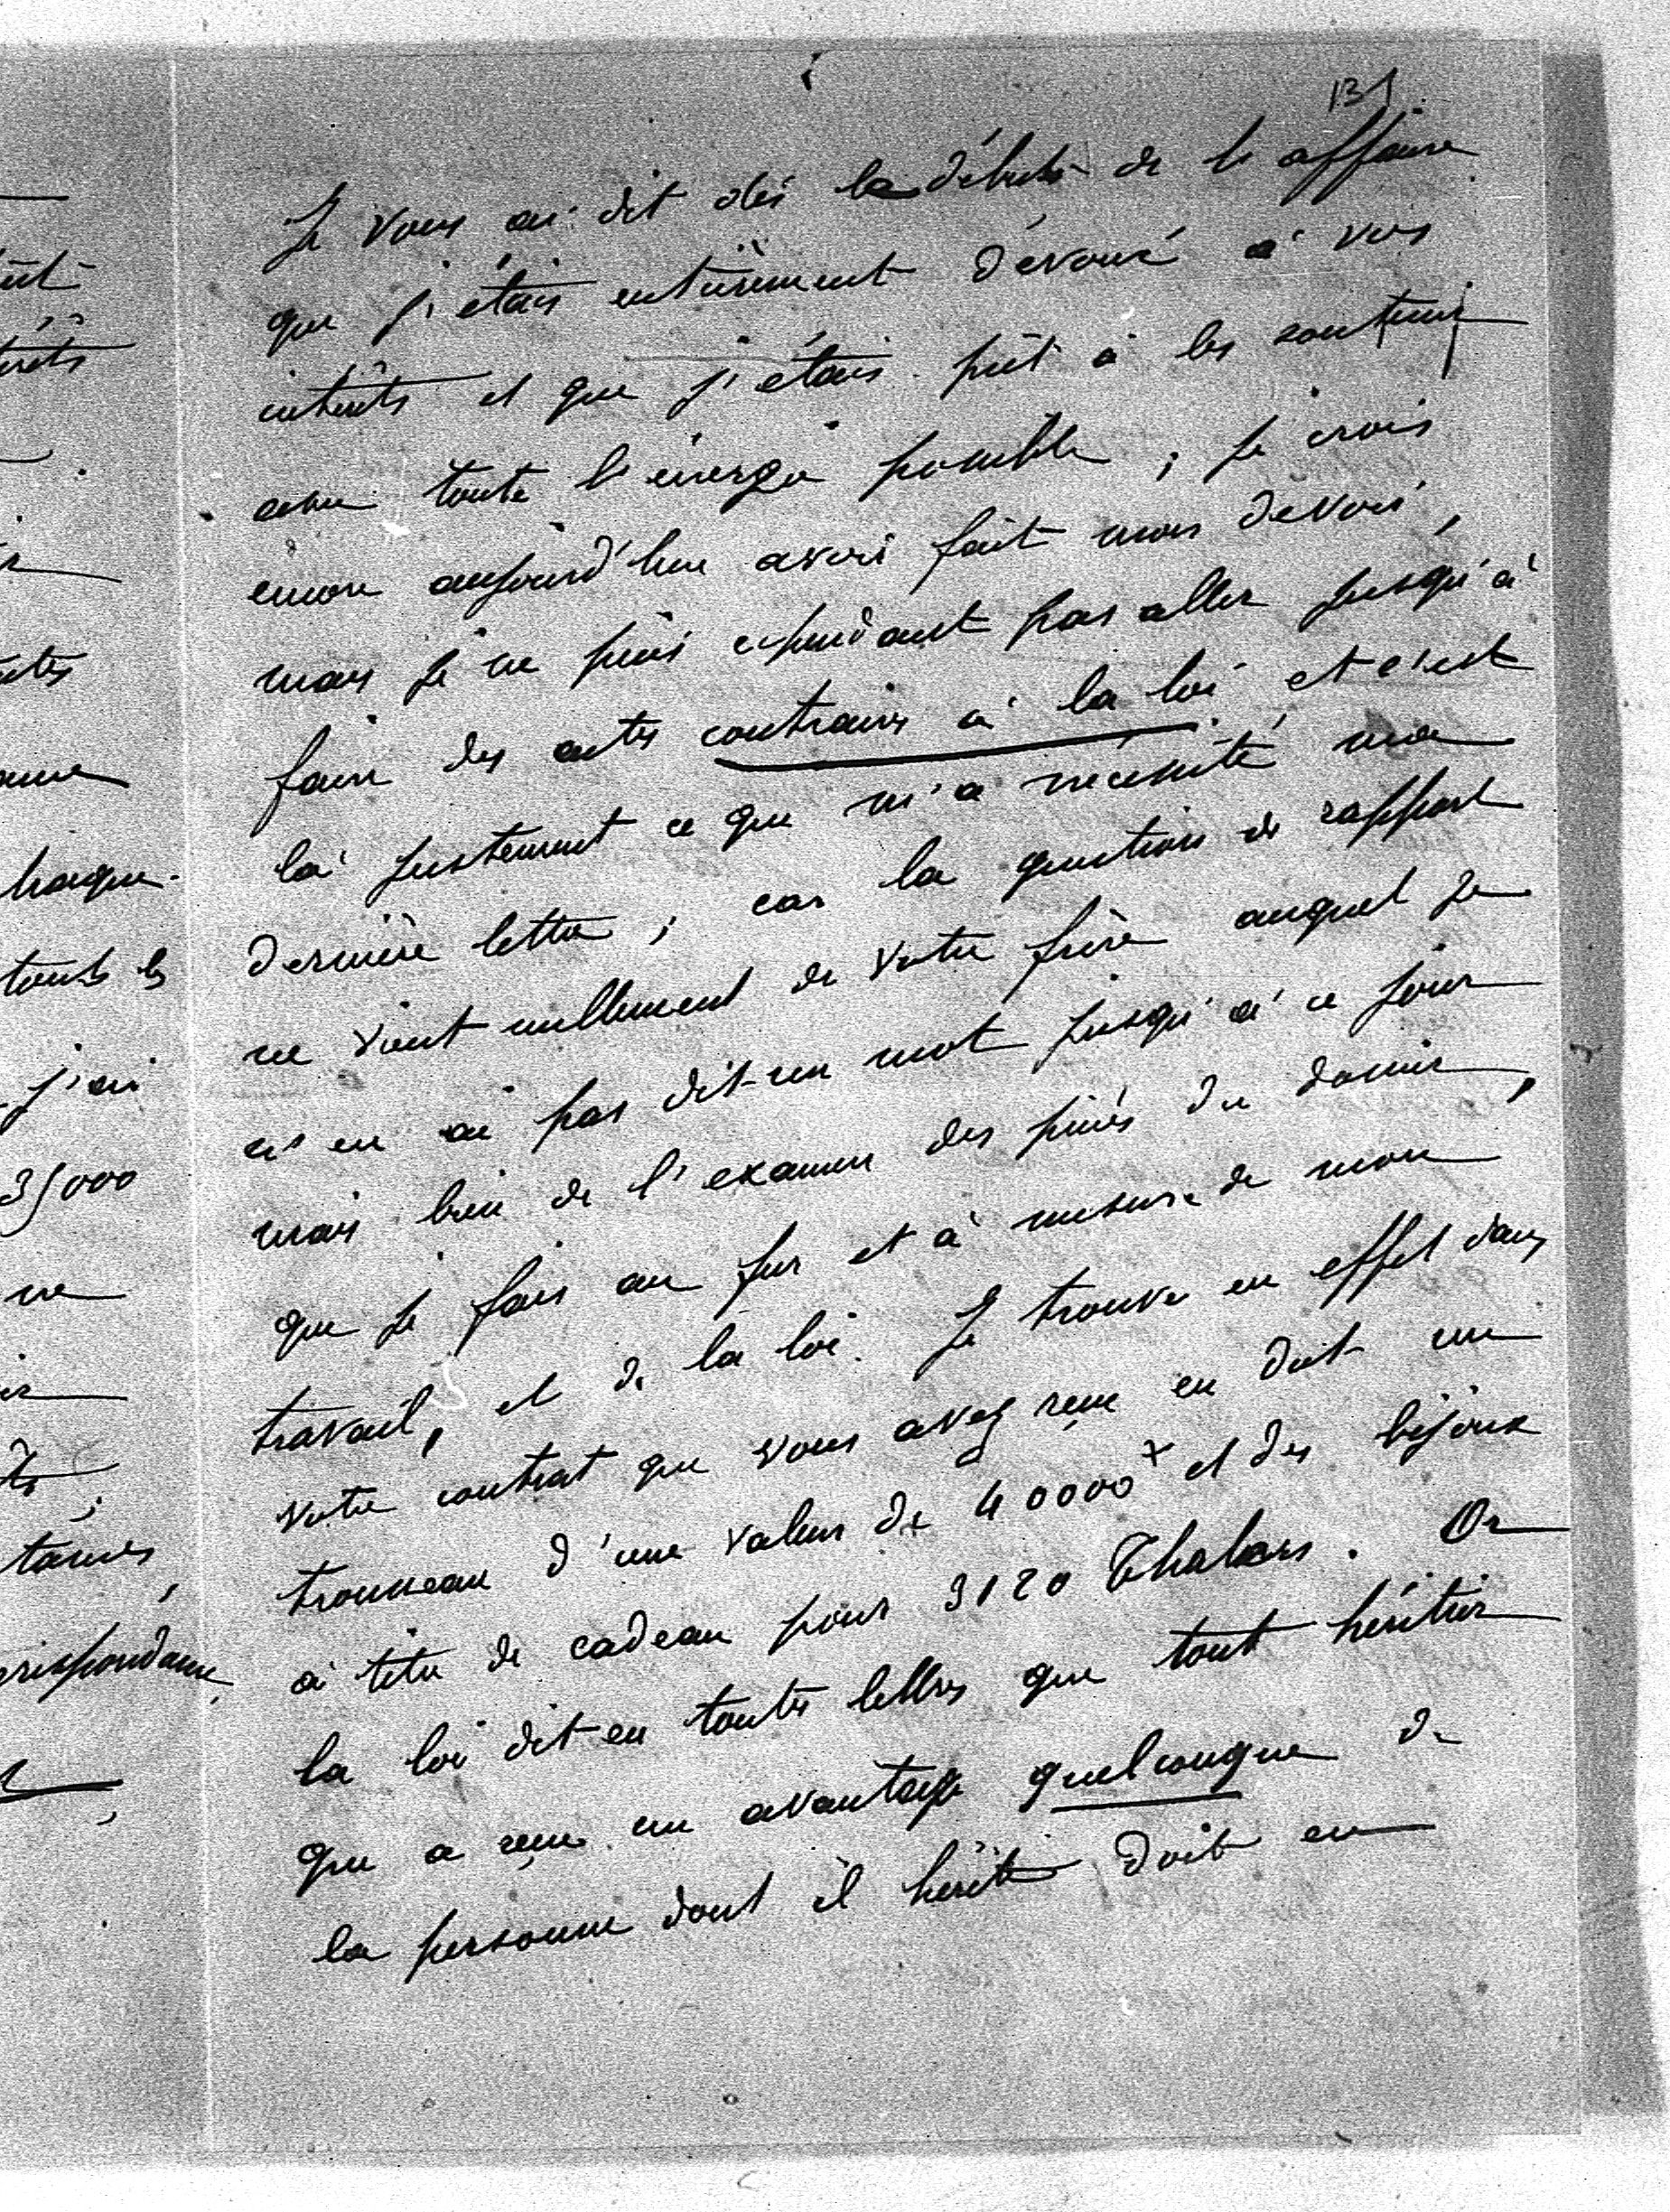 131
Je vous ai dit dès le début de l'affaire
que j'étais entièrement dévoué à vos
intérêts et que j'étais prêt à les soutenir
avec toute l'énergie possible ; je crois
encore aujourd'hui avoir fait mon devoir,
mais je ne puis cependant pas aller jusqu'à
faire des actes contraires à la loi et c'est
là justement ce que m'a nécessité ma
dernière lettre ; car la question de rapport
ne vient nullement de votre frère auquel je
n'en ai pas dit un mot jusqu'à ce jour
mais bien de l'examen des pièces du dossier,
que je fais au fur et à mesure de mon
travail, et de la loi. Je trouve en effet dans
votre contrat que vous avez reçu en dot un
trousseau d'une valeur de 40000 et des bijoux
à titre de cadeau pour 3120 Thalers. Or
la loi dit en toutes lettres que tout héritier
qui a reçu un avantage quelconque de
la personne dont il hérite doit en
haque
toutes les
j'ai
35000
ne